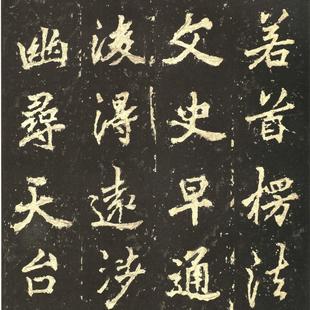 若首楞法
文史早通
後得遠涉
幽尋天台